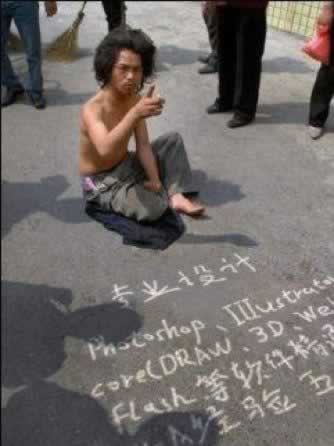 专业设计
Photoshop、Illustrator
corelDRAW、3D、We
Flash等软件精
经验 五